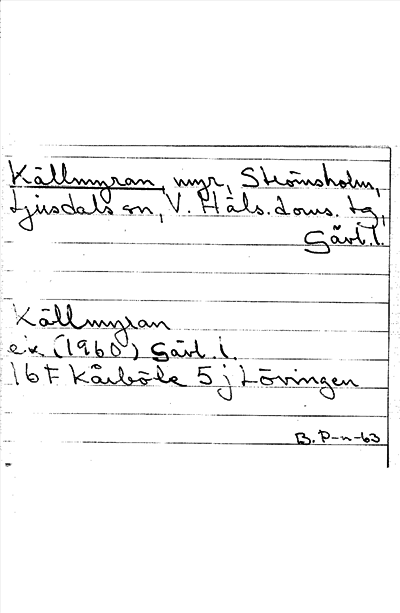 Källmyran, myr, Strömsholm,
Ljusdals sn, V. Häls. doms. tg,
Gävl. l.
Källmyran
ek (1960) Gävl. l.
16 F Kårböle 5 j Lövingen
B. P-n-63